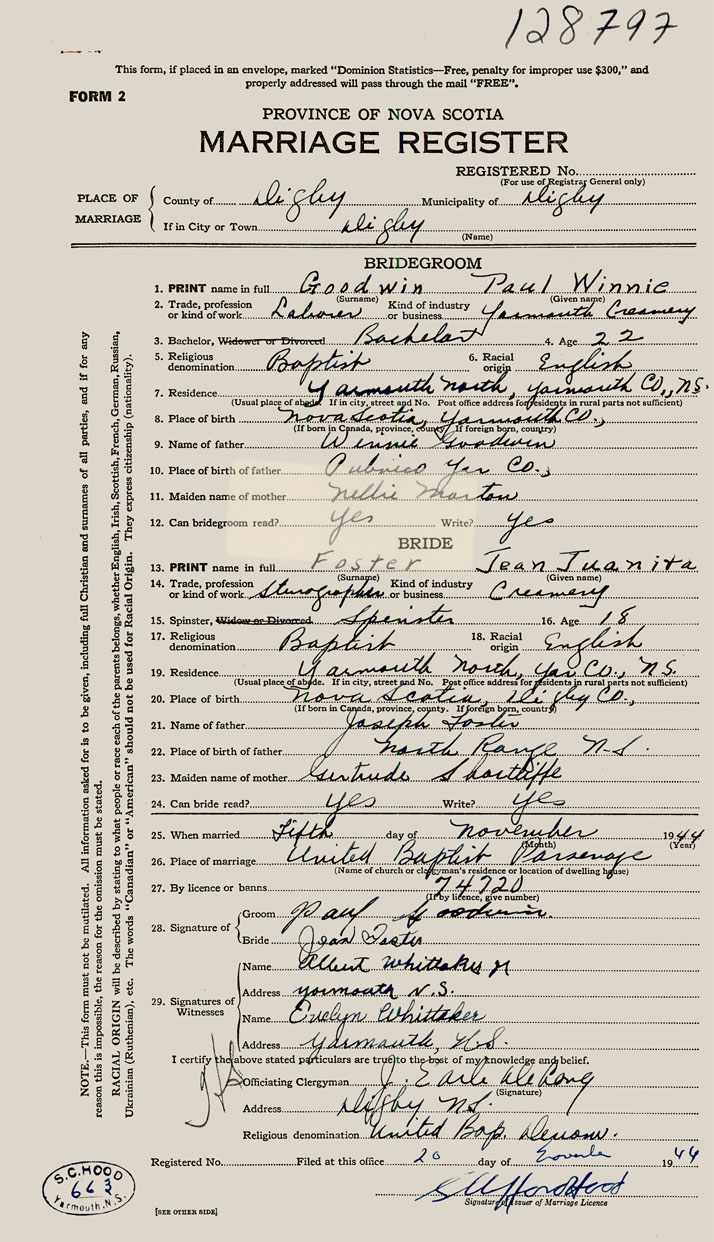 128797
This form, if placed in an envelope, marked "Dominion Statistics—Free, penalty for improper use $300," and
properly addressed will pass through the mail "FREE".
FORM 2
PROVINCE OF NOVA SCOTIA
MARRIAGE REGISTER
REGISTERED No.
(For use of Registrar General only)
PLACE OF MARRIAGE
County of Digby Municipality of Digby
If in City or Town Digby
(Name)
BRIDEGROOM
1. PRINT name in full Goodwin Paul Winnie
(Surname) (Given name)
2. Trade, profession or kind of work Laborer Kind of industry or business Yarmouth Creamery
3. Bachelor, Widower or Divorced Bachelor 4. Age 22
5. Religious denomination Baptist 6. Racial origin English
7. Residence Yarmouth North, Yarmouth Co., N.S.
(Usual place of abode. If in city, street and No. Post office address for residents in rural parts not sufficient)
8. Place of birth Nova Scotia, Yarmouth Co.,
(If born in Canada, province, county. If foreign born, country)
9. Name of father Winnie Goodwin
10. Place of birth of father Pubnico Yar Co.,
11. Maiden name of mother Nellie Morton
12. Can bridegroom read? Yes Write? Yes
BRIDE
13. PRINT name in full Foster Jean Juanita
(Surname) (Given name)
14. Trade, profession or kind of work Stenographer Kind of industry or business Creamery
15. Spinster, Widow or Divorced Spinster 16. Age 18
17. Religious denomination Baptist 18. Racial origin English
19. Residence Yarmouth North, Yar Co., N.S.
(Usual place of abode. If in city, street and No. Post office address for residents in rural parts not sufficient)
20. Place of birth Nova Scotia, Digby Co.,
(If born in Canada, province, county. If foreign born, country)
21. Name of father Joseph Foster
22. Place of birth of father North Range N.S.
23. Maiden name of mother Gertrude Shortliffe
24. Can bride read? Yes Write? Yes
25. When married Fifth day of November 1944
(Month) (Year)
26. Place of marriage United Baptist Parsonage
(Name of church or clergyman's residence or location of dwelling house)
27. By licence or banns 74720
(If by licence, give number)
28. Signature of
Groom Paul Goodwin
Bride Jean Foster
29. Signatures of Witnesses
Name Albert Whittaker Jr
Address Yarmouth N.S.
Name Evelyn Whittaker
Address Yarmouth, N.S.
I certify the above stated particulars are true to the best of my knowledge and belief.
Officiating Clergyman J. Earle DeLong
(Signature)
Address Digby N.S.
Religious denomination United Bap. Denom.
Registered No. Filed at this office 20 day of 1944
Signature of Issuer of Marriage Licence
S.C. HOOD
663
Yarmouth, N.S.
[SEE OTHER SIDE]
NOTE.—This form must not be mutilated. All information asked for is to be given, including full Christian and surnames of all parties, and if for any
reason this is impossible, the reason for the omission must be stated.
RACIAL ORIGIN will be described by stating to what people or race each of the parents belongs, whether English, Irish, Scottish, French, German, Russian,
Ukrainian (Ruthenian), etc. The words "Canadian" or "American" should not be used for Racial Origin. They express citizenship (nationality).